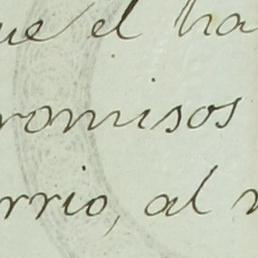 ue el ha
romisos
rrio, al